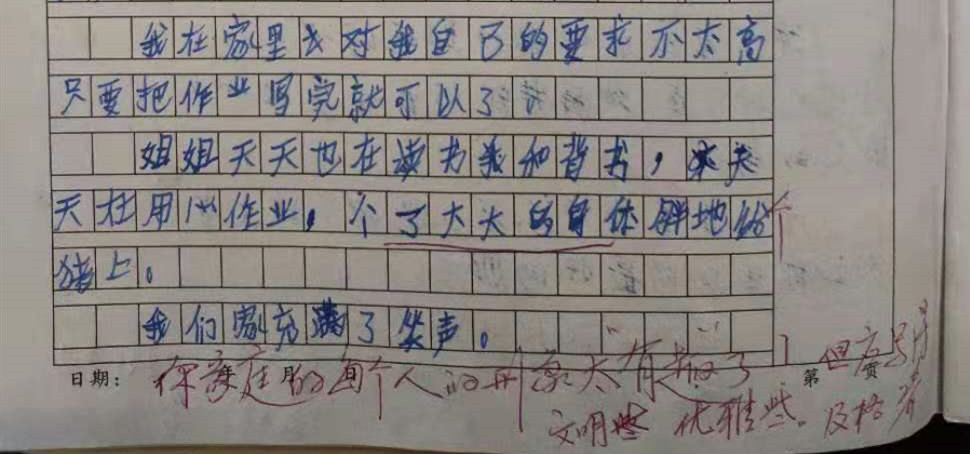 我在家里我对我自己的要求不太高
只要把作业写完就可以了。
姐姐天天也在读书和背书,天
天在用心作业,个了大大的身体胖地
猪上。
我们家充满了笑声。
日期: 年 月 第 页
你家庭的每个人的形象太有趣了
文明些 优雅些。及格